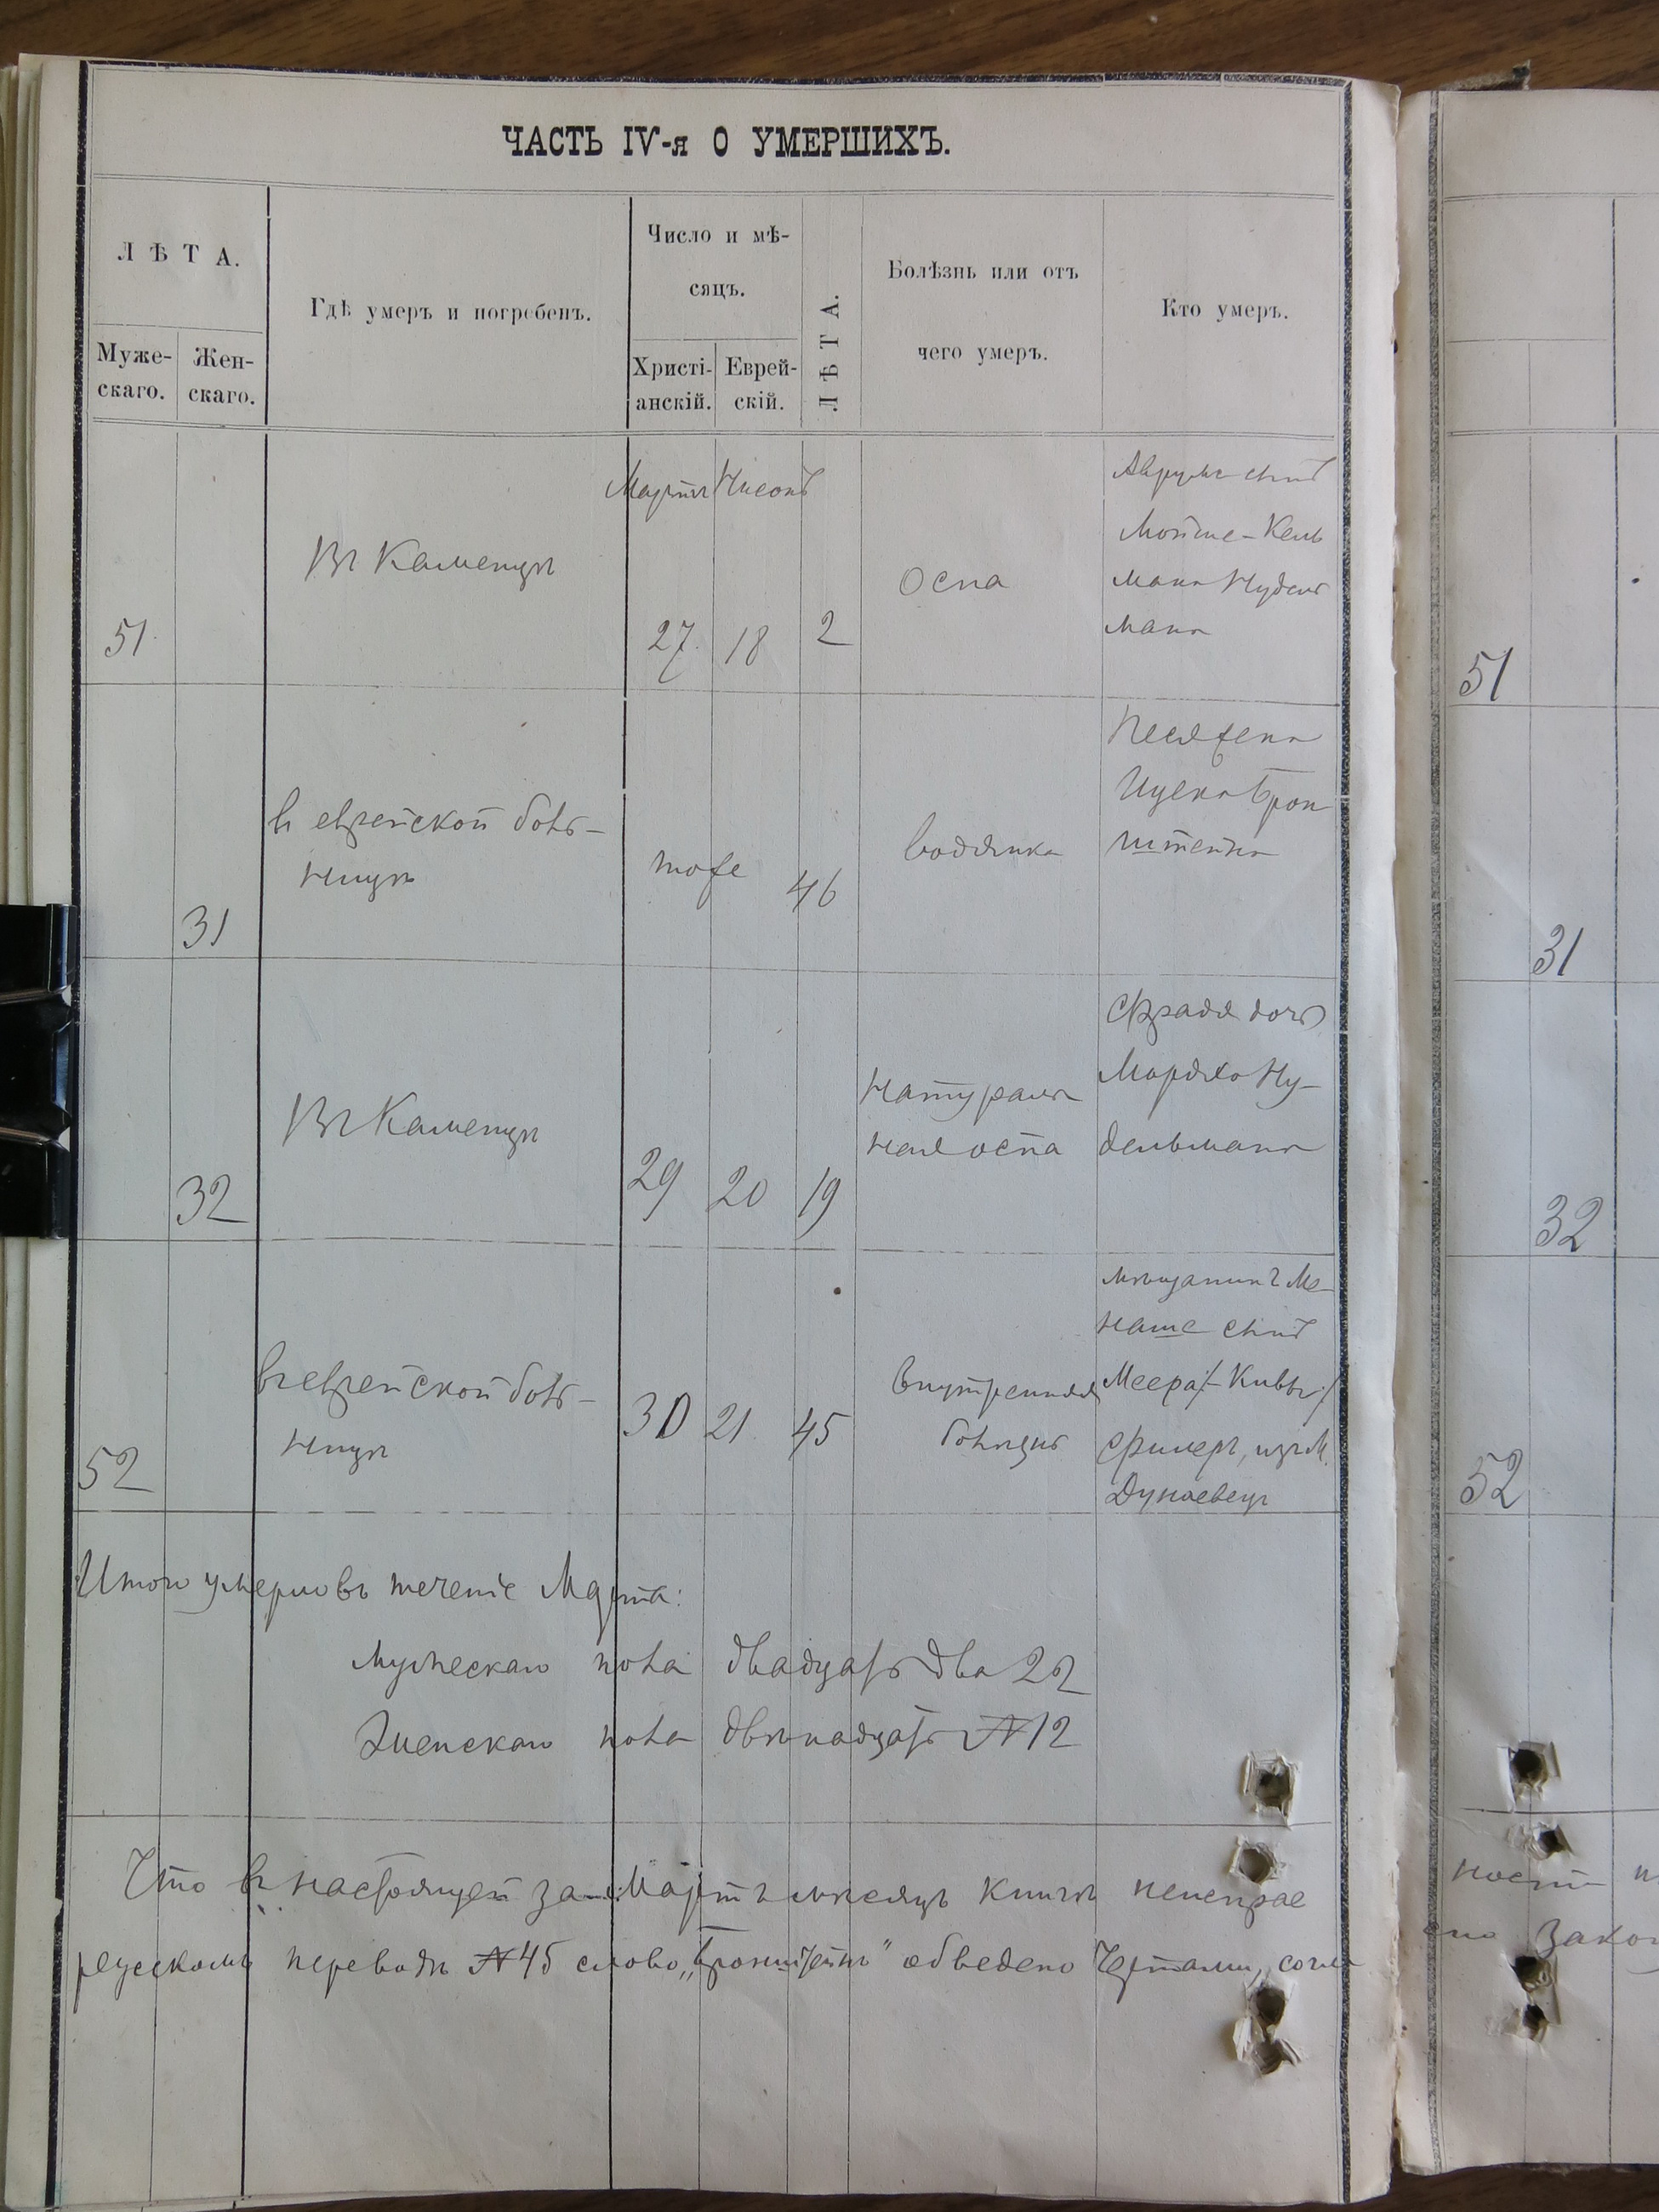 ЧАСТЬ IV-я О УМЕРШИХЪ.
ЛѢТА.
Муже-
скаго.
Жен-
скаго.
Гдѣ умеръ и погребенъ.
Число и мѣ-
сяцъ.
Христі-
анскій.
Еврей-
скій.
ЛѢТА.
Болѣзнь или отъ
чего умеръ.
Кто умеръ.
51
Въ Каменцѣ
Мартъ Нисонъ
27 18 2
Оспа
Аврумъ сынъ
Мойше-Кель
мана Нудель
мана
51
31
въ еврейской боль-
ницѣ
тоже 46
водянка
Песя жена
Ицека Брон
штейна
31
32
Въ Каменцѣ
29 20 19
Натураль
ная оспа
Фрадя дочь
Мордко Ну-
дельмана
32
52
въ еврейской боль-
ницѣ
30 21 45
внутренняя
болѣзнь
мѣщанинъ Ме-
наше сынъ
Меера /-Кивы/
Фишеръ, изъ М.
Дунаевецъ
52
Итого умерло въ теченіе Марта:
мужескаго пола двадцать два 22
женскаго пола двѣнадцать № 12
Что въ настоящей за Мартъ мѣсяцъ книгѣ неисправ
русскомъ переводѣ № 45 слово „Бронштейнъ" обведено чертами, согла